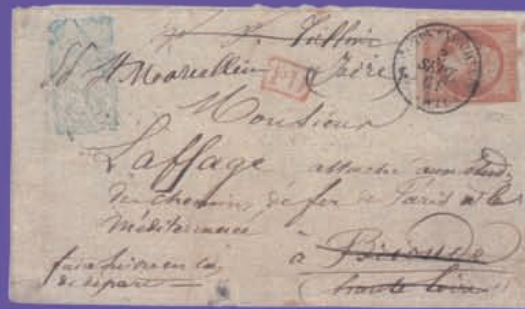 à St Vallier
St Marcellin (Isère)
PD
Monsieur
Laffage attaché aux
des chemins de fer de Paris à la
Méditerranée
à Brioude
haute Loire
faire suivre en cas
de départ